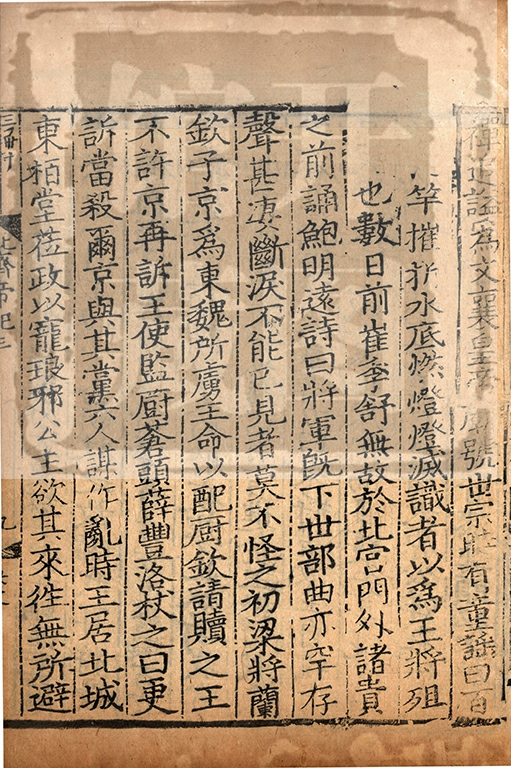 禪追謚爲文襄皇帝廟號世宗時有童謡曰百
竿摧折水底燃燈燈滅識者以爲王將殂
也數日前崔季舒無故於北宫門外諸貴
之前誦鮑明遠詩曰將軍既下世部曲亦罕存
聲甚凄斷淚不能已見者莫不怪之初梁將蘭
欽子京爲東魏所虜王命以配厨欽請贖之王
不許京再訴王使監厨蒼頭薛豐洛杖之曰更
訴當殺爾京與其黨六人謀作亂時王居北城
東柏堂莅政以寵琅邪公主欲其來徃無所避
北齊帝紀三
九